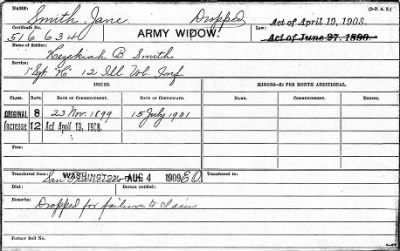 Smith Jane Dropped Act of April 19, 1908.
Certificate No.
516634 ARMY WIDOW. Act of June 27, 1890
Name of Soldier:
Hezekiah B Smith
Service:
1" Sgt "K" 12 Ill Vol Inf
ISSUES. MINORS—$2 PER MONTH ADDITIONAL.
CLASS. RATE. DATE OF COMMENCEMENT. DATE OF CERTIFICATE. NAME. COMMENCEMENT. ENDING.
ORIGINAL 8 23 Nov. 1899 15 July 1901
Increase 12 Act April 19, 1908.
From:
Transferred from San Francisco WASHINGTON AUG 4 1909 E.O. Transferred to:
Died: Remarried:
Remarks: Dropped for failure to claim
Former Roll No.